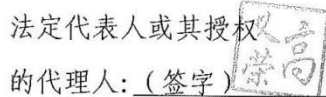 法定代表人或其授权
的代理人:（签字）